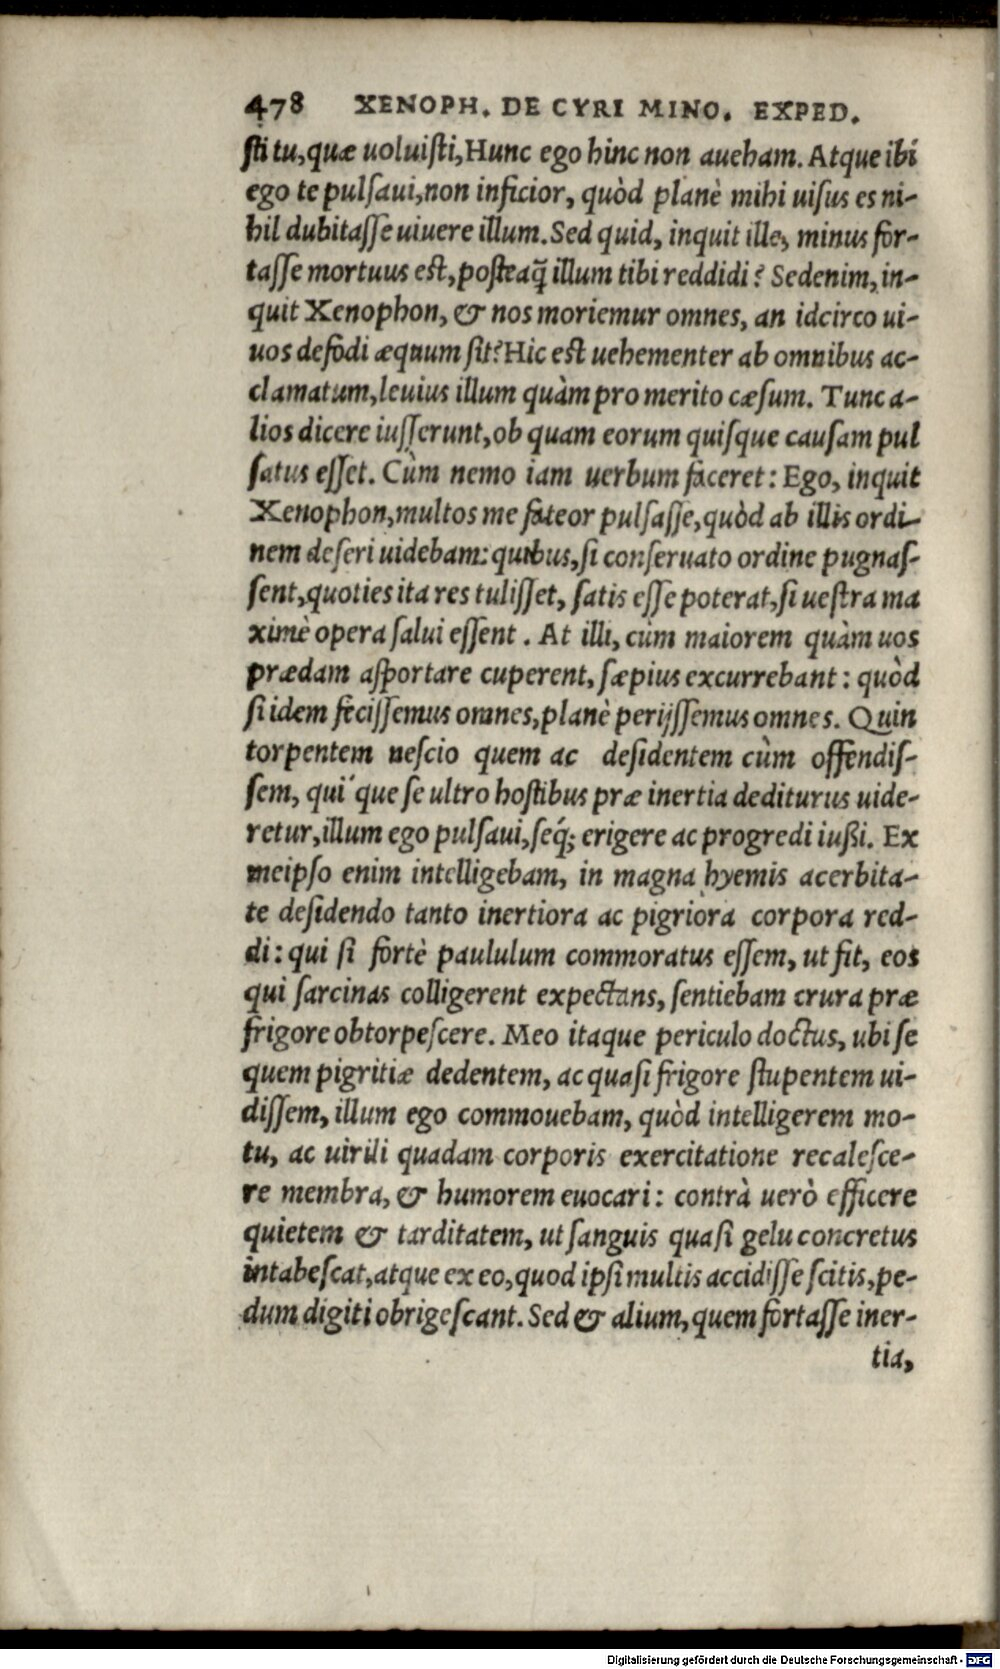 478 XENOPH. DE CYRI MINO. EXPED.
ſti tu, quæ uoluiſti, Hunc ego hinc non aueham. Atque ibi
ego te pulſaui, non inficior, quòd planè mihi uiſus es ni-
hil dubitaſſe uiuere illum. Sed quid, inquit ille, minus for-
taſſe mortuus est, poſteaq̃ illum tibi reddidi? Sedenim, in-
quit Xenophon, & nos moriemur omnes, an idcirco ui-
uos defodi æquum ſit? Hic est uehementer ab omnibus ac-
clamatum, leuius illum quàm pro merito cæſum. Tunc a-
lios dicere iuſſerunt, ob quam eorum quiſque cauſam pul
ſatus eſſet. Cùm nemo iam uerbum faceret: Ego, inquit
Xenophon, multos me fateor pulſaſſe, quòd ab illis ordi-
nem deſeri uidebam: quibus, ſi conſeruato ordine pugnaſ-
ſent, quoties ita res tuliſſet, ſatis eſſe poterat, ſi ueſtra ma
ximè opera ſalui eſſent. At illi, cùm maiorem quàm uos
prædam aſportare cuperent, ſæpius excurrebant: quòd
ſi idem feciſſemus omnes, planè perijſſemus omnes. Quin
torpentem neſcio quem ac deſidentem cùm offendiſ-
ſem, qui´que ſe ultro hoſtibus præ inertia dediturus uide-
retur, illum ego pulſaui, ſeq́; erigere ac progredi iußi. Ex
meipſo enim intelligebam, in magna hyemis acerbita-
te deſidendo tanto inertiora ac pigriora corpora red-
di: qui ſi fortè paululum commoratus eſſem, ut fit, eos
qui ſarcinas colligerent expectans, ſentiebam crura præ
frigore obtorpeſcere. Meo itaque periculo doctus, ubi ſe
quem pigritiæ dedentem, ac quaſi frigore ſtupentem ui-
diſſem, illum ego commouebam, quòd intelligerem mo-
tu, ac uirili quadam corporis exercitatione recaleſce-
re membra, & humorem euocari: contrà uerò efficere
quietem & tarditatem, ut ſanguis quaſi gelu concretus
intabeſcat, atque ex eo, quod ipſi multis accidiſſe ſcitis, pe-
dum digiti obrigeſcant. Sed & alium, quem fortaſſe iner-
tia,
Digitalisierung gefördert durch die Deutsche Forschungsgemeinschaft - DFG